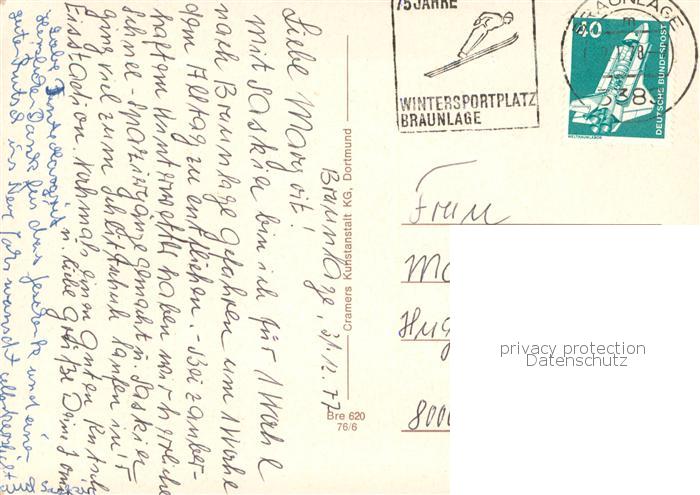 75 JAHRE
WINTERSPORTPLATZ
BRAUNLAGE
BRAUNLAGE
m
78
338
40
DEUTSCHE BUNDESPOST
WELTRAUMLABOR
Braunlage, 31.12.77
Liebe Margrit!
Mit Saskia bin ich für 1 Woche
nach Braunlage gefahren um 1 Woche
dem Alltag zu entfliehen. - Bei zauber-
haftem Winterwetter haben wir herrliche
Schnee-Spaziergänge gemacht u. Saskia
ging viel zum Schlittschuh laufen in's
Eisstadion. Nochmals einen guten Rutsch
u. liebe Grüße Deine
Liebe Tante Margrit
Herzlichen Dank für das Geschenk und einen
guten Rutsch ins Neue Jahr wünscht
Cramers Kunstanstalt KG, Dortmund
Bre 620
76/6
Frau
privacy protection
Datenschutz